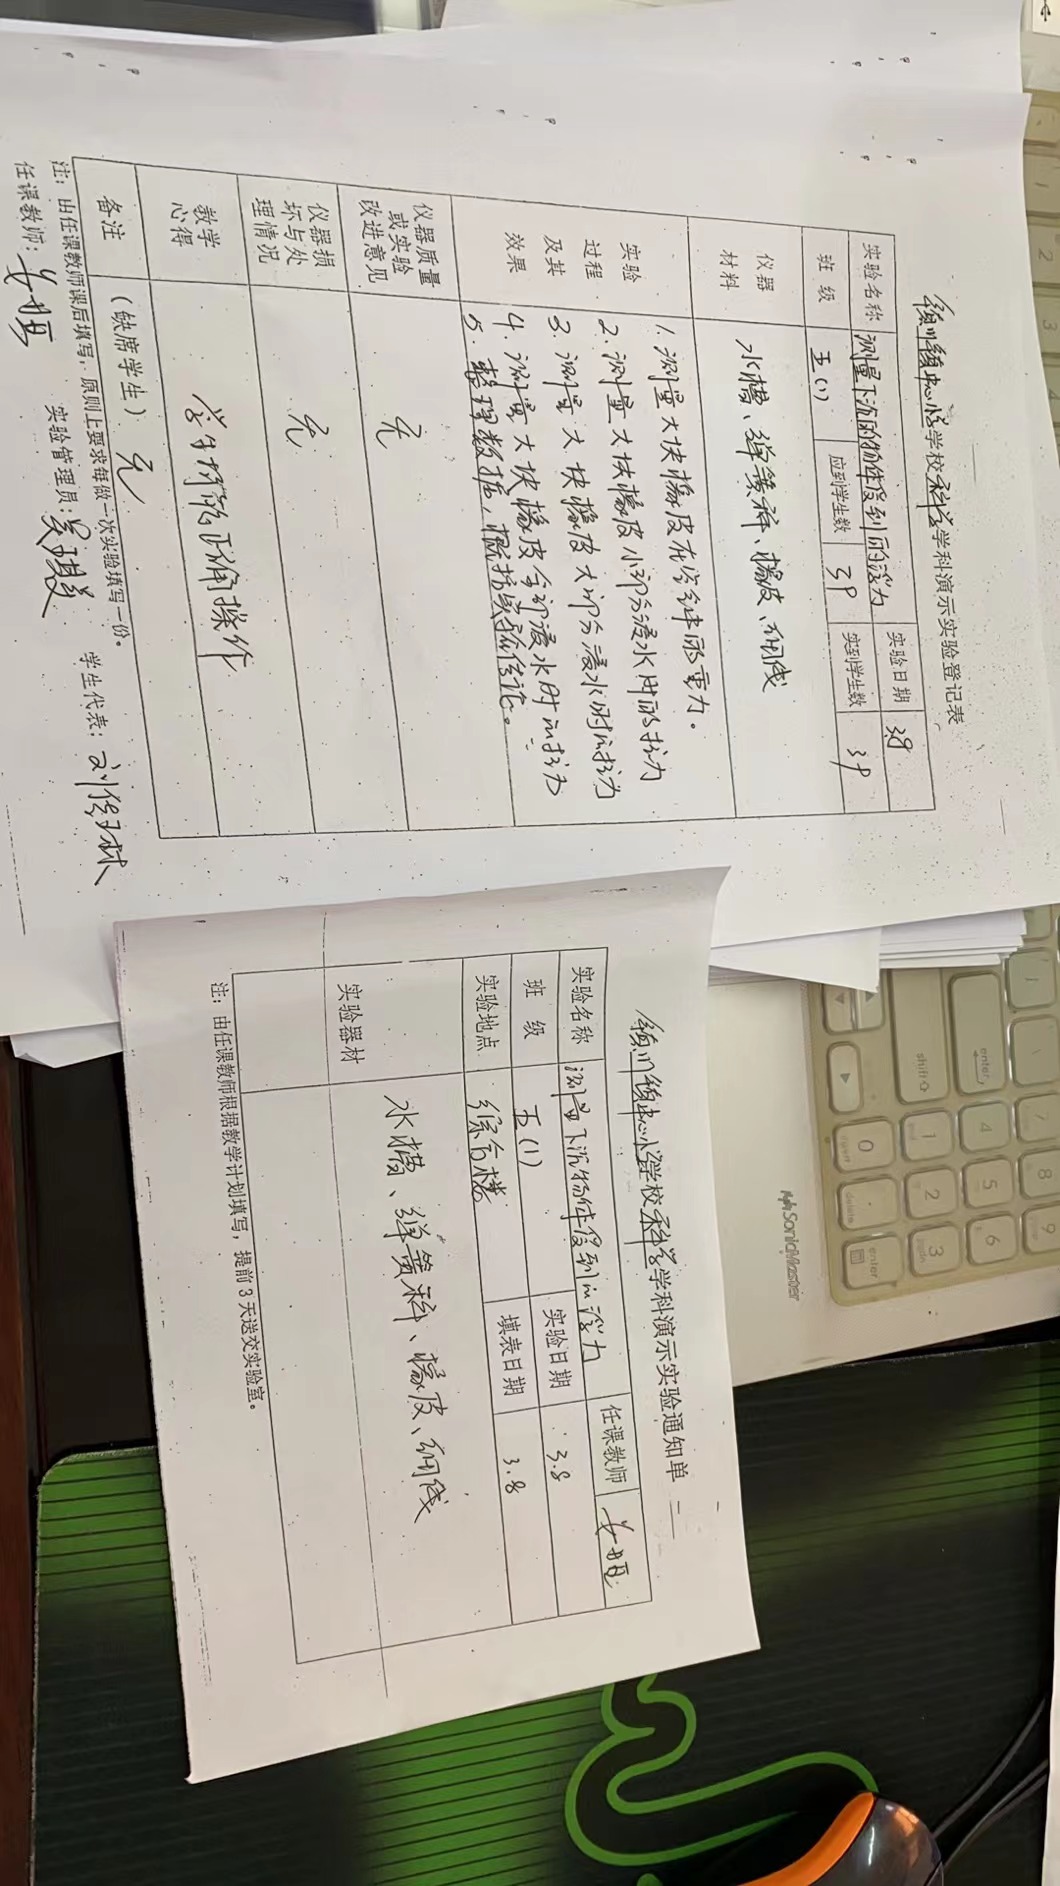 镇中心学校科学学科演示实验登记表
实验名称 测量下沉的物体受到的浮力 实验日期 3.8
班 级 五(1) 应到学生数 39 实到学生数 39
仪器材料 水槽、弹簧秤、橡皮、细线
实验过程及其效果
1. 测量大块橡皮在空气中的重力。
2. 测量大块橡皮小部分浸水时的拉力
3. 测量大块橡皮大部分浸水时的拉力
4. 测量大块橡皮全部浸水时的拉力
5. 整理数据,概括实验结论。
仪器质量或实验改进意见 无
仪器损坏与处理情况 无
教学心得 学生均能正确操作
备注 (缺席学生) 无
注:由任课教师课后填写,原则上要求每做一次实验填写一份。
任课教师: 实验管理员: 学生代表:
镇中心学校科学学科演示实验通知单
实验名称 测量下沉物体受到的浮力 任课教师
班 级 五(1) 实验日期 3.8
实验地点 综合楼 填表日期 3.8
实验器材 水槽、弹簧秤、橡皮、细线
注:由任课教师根据教学计划填写,提前3天送交实验室。
SonicMaster
shift
enter
0
1
2
3
4
5
6
8
9
delete
enter